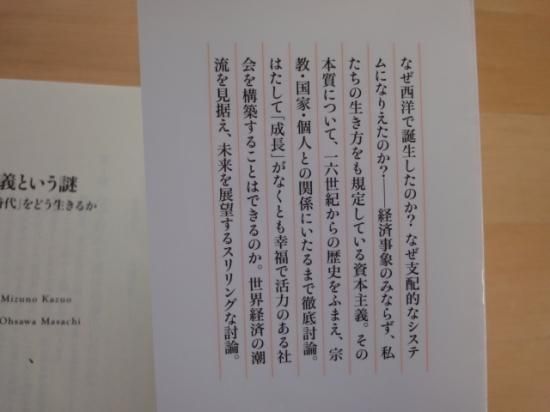 なぜ西洋で誕生したのか? なぜ支配的なシステ
ムになりえたのか?――経済事象のみならず、私
たちの生き方をも規定している資本主義。その
本質について、一六世紀からの歴史をふまえ、宗
教・国家・個人との関係にいたるまで徹底討論。
はたして「成長」がなくとも幸福で活力のある社
会を構築することはできるのか。世界経済の潮
流を見据え、未来を展望するスリリングな討論。
義という謎
時代」をどう生きるか
Mizuno Kazuo
Ohsawa Masachi